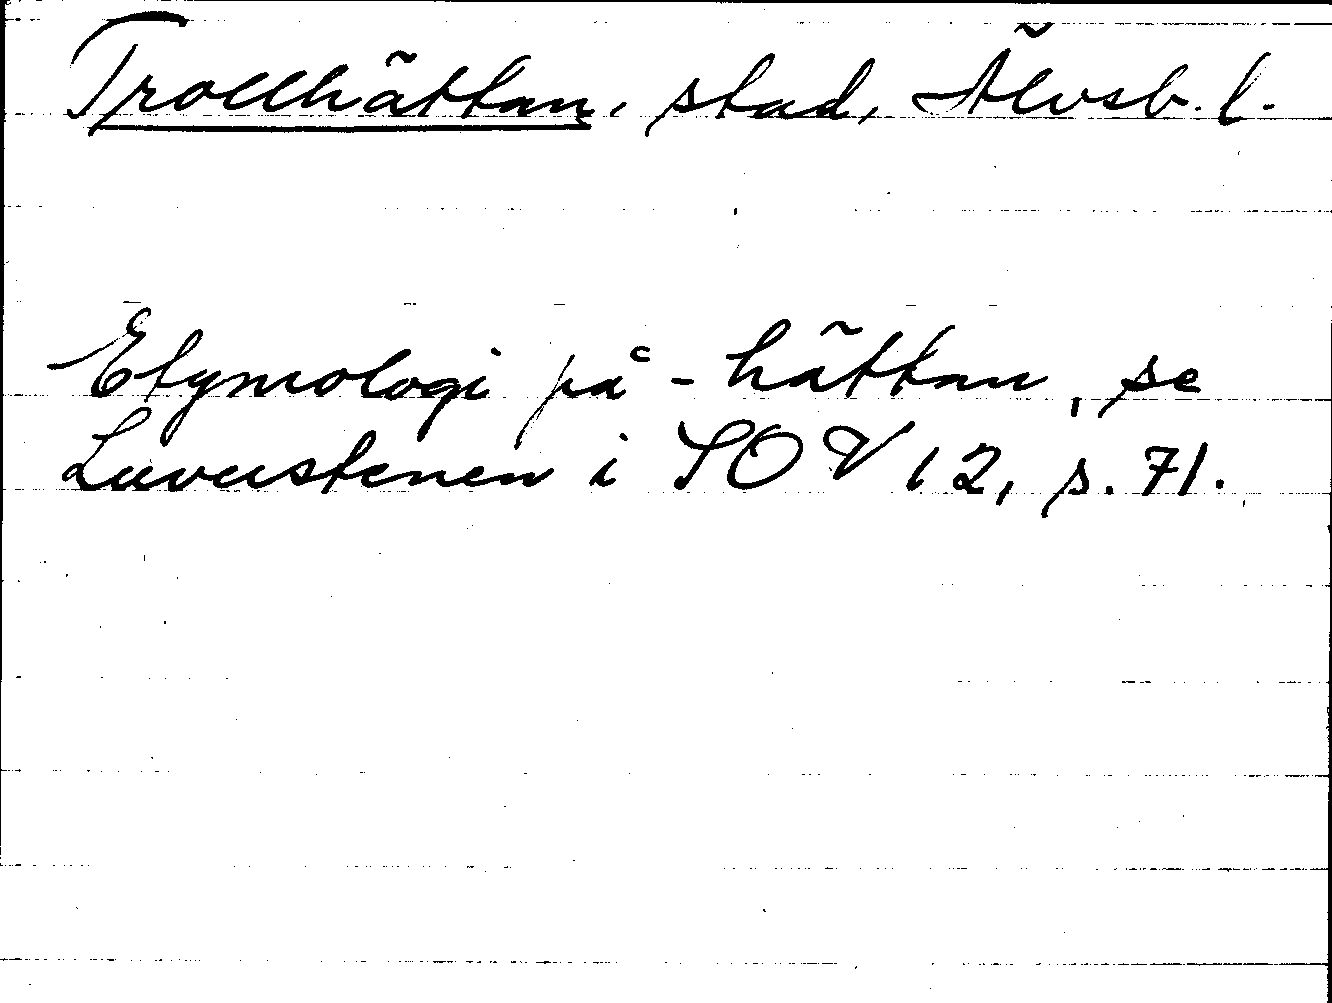 Trollhättan, stad, Älvsb. l.
Etymologi på -hättan, se
Luvustenen i SOV 12, s. 71.